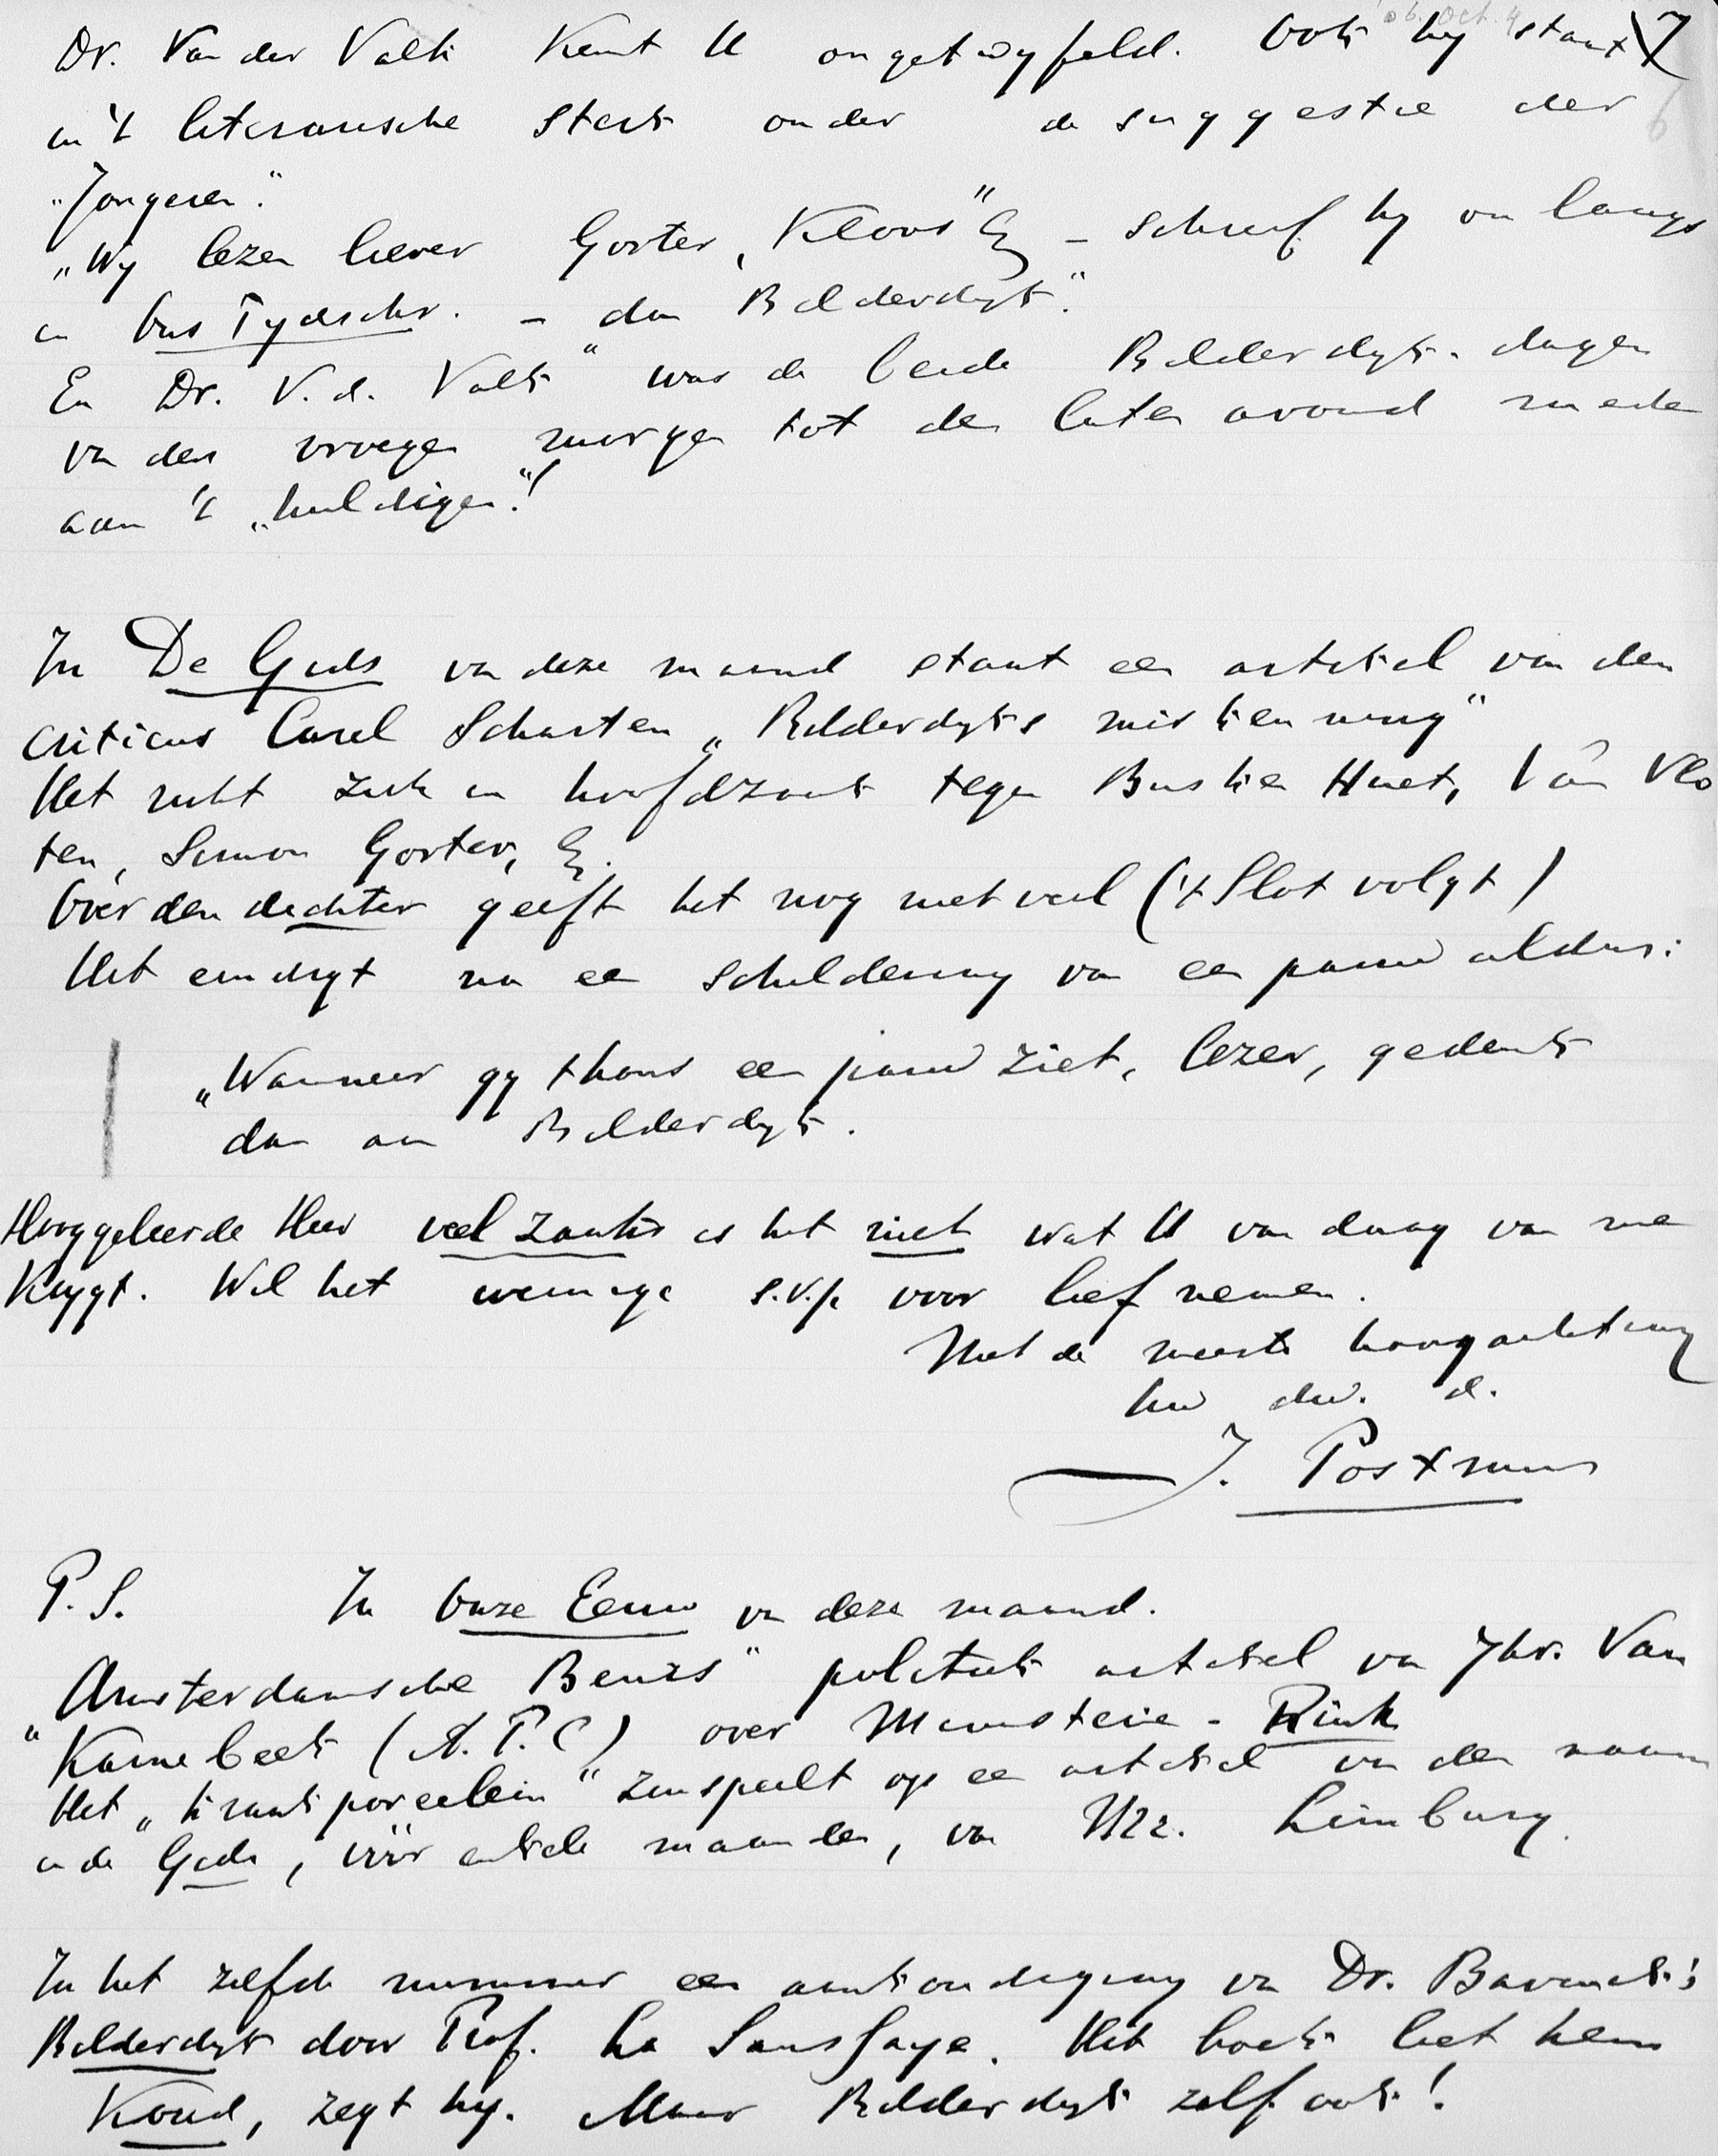 Dr. Van der Valk kent U ongetwyfeld. Ook hy staat 7
in 't literarische sterk onder de suggestie der
„Jongeren".
„Wy lezen liever Gorter, Kloos" & – schreef hy onlangs
in Ons Tydschr. – dan Bilderdyk".
En Dr. V. d. Valk was de beide Bilderdyk-dagen
van den vroegen morgen tot den laten avond mede
aan 't „huldigen"!
In De Gids van deze maand staat een artikel van den
criticus Carel Scharten „Bilderdyks miskenning"
Het richt zich in hoofdzaak tegen Busken Huet, Van Vlo
ten, Simon Gorter, &.
Over den dichter geeft het nog niet veel ('t Slot volgt)
Het eindigt na een schildering van een pauw aldus:
„Wanneer gy thans een pauw ziet, lezer, gedenk
dan aan Bilderdyk.
Hooggeleerde Heer veel zaaks is het niet wat U van daag van me
krygt. Wil het weinige s.v.p. voor lief nemen.
Met de meeste hoogachting
Uw dw. d.
J. Postmus
P.S. In Onze Eeuw van deze maand.
„Amsterdamsche Beurs" politiek artikel van Jhr. Van
Karnebeek (A. P. C) over Ministerie - Rink
Het „kraakporcelein" zinspeelt op een artikel van den naam
in de Gids, vóór enkele maanden, van Mr. Limburg.
In het zelfde nummer een aankondiging van Dr. Bavinck's
Bilderdyk door Prof. La Saussaye. Het boek liet hem
koud, zegt hy. Maar Bilderdyk zelf ook!